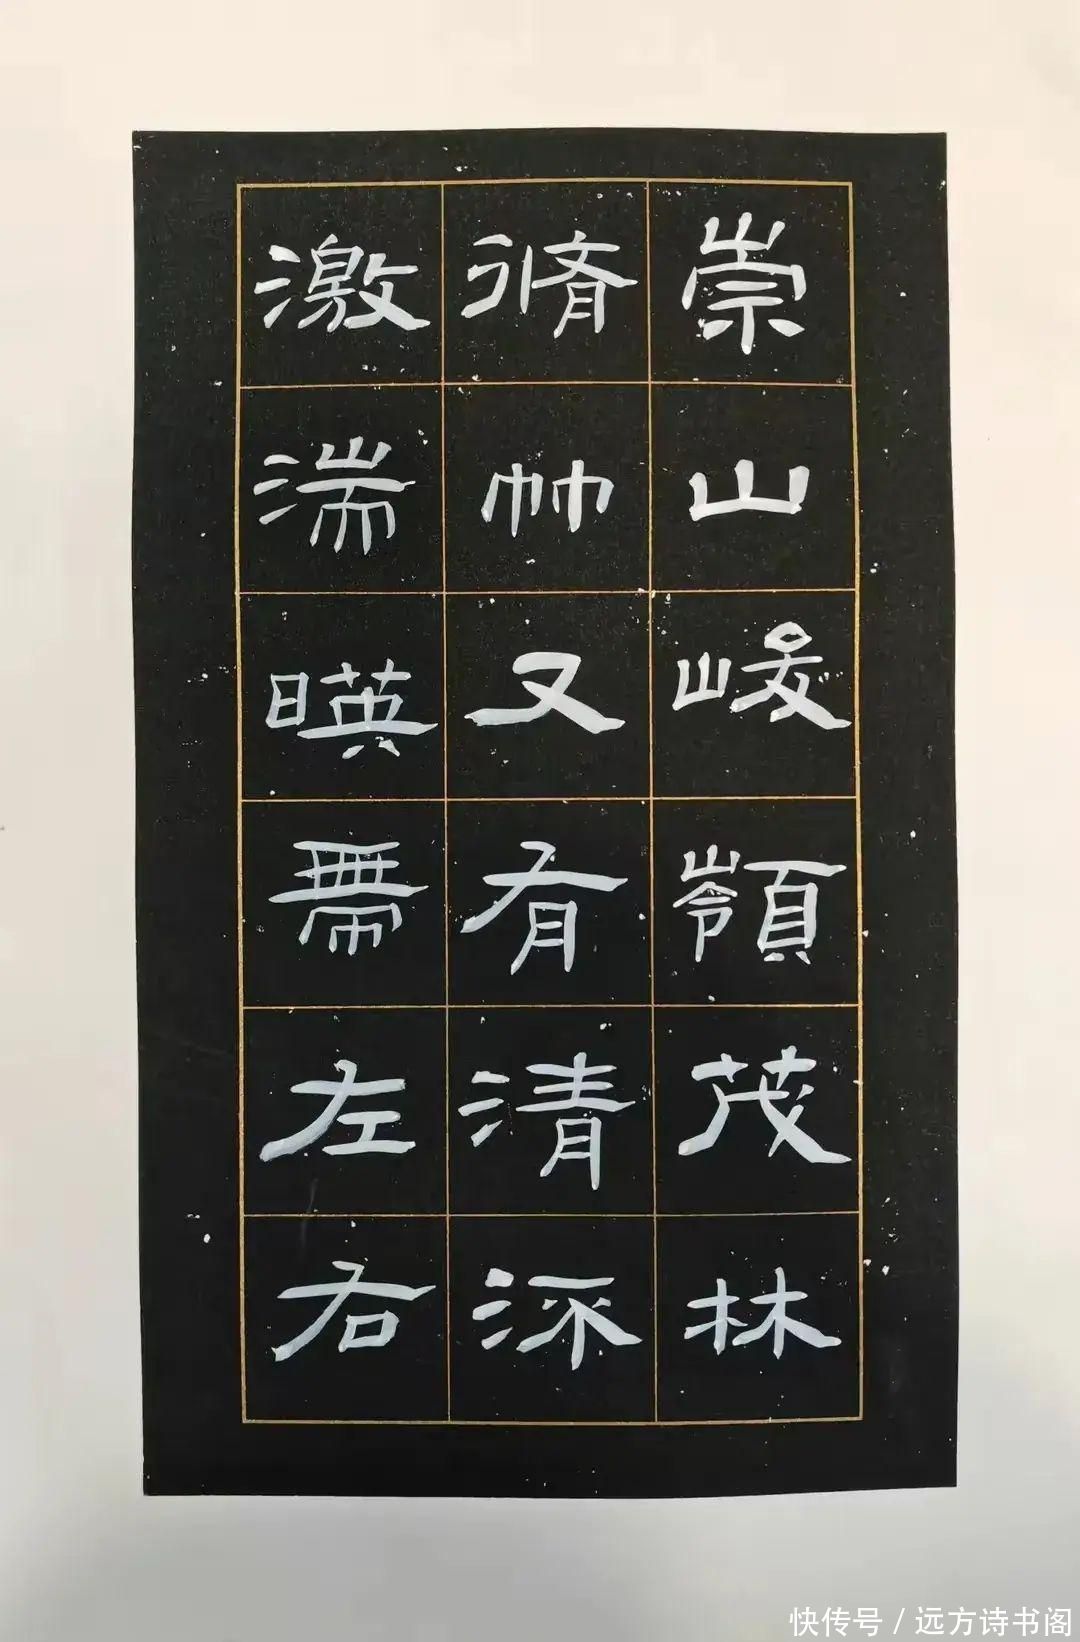 崇山峻嶺茂林
脩竹又有清流
激湍暎帶左右
快传号／远方诗书阁